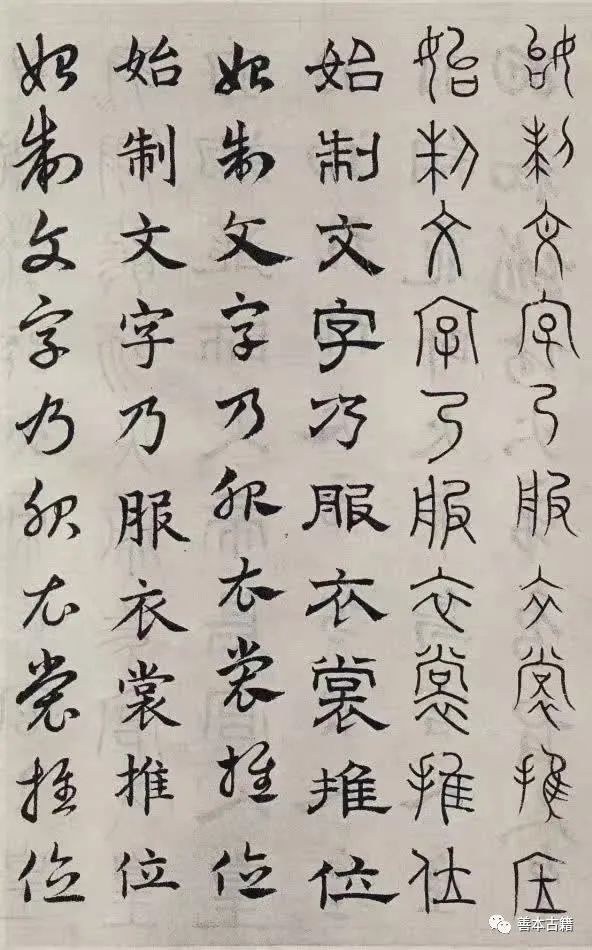 始制文字乃服衣裳推位
始制文字乃服衣裳推位
始制文字乃服衣裳推位
始制文字乃服衣裳推位
始制文字乃服衣裳推位
始制文字乃服衣裳推位
善本古籍